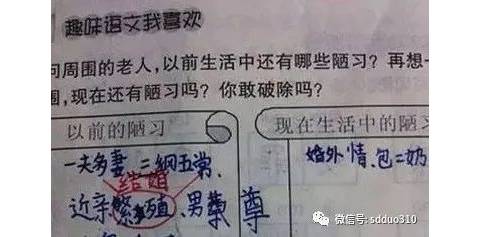 趣味语文我喜欢
问周围的老人,以前生活中还有哪些陋习?再想一
围,现在还有陋习吗?你敢破除吗?
以前的陋习
现在生活中的陋习
一夫多妻 二纲五常、
结婚
近亲繁殖,男尊
婚外情、包二奶
微信号: sdduo310